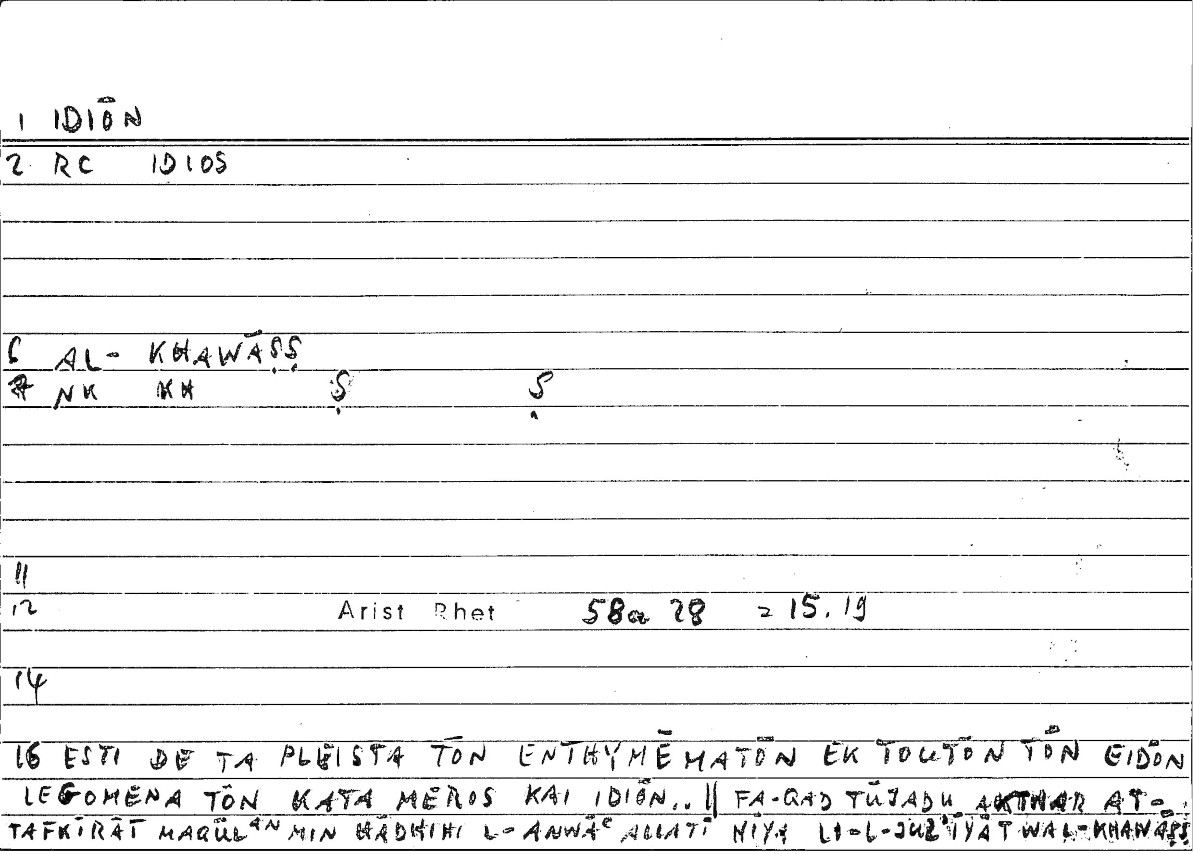 1 IDIŌN
2 RC IDIOS
6 AL- KHAWĀṢṢ
7 NK KH Ṣ Ṣ
11
12 Arist Rhet 58a 28 = 15.19
14
16 ESTI DE TA PLEISTA TŌN ENTHYMĒMATŌN EK TOUTŌN TŌN EIDŌN
LEGOMENA TŌN KATA MEROS KAI IDIŌN.. || FA-QAD TŪJADU AKTHAR AT-
TAFKĪRĀT MAQŪLᴬᴺ MIN HĀDHIHI L-ANWĀᶜ ALLATĪ HIYA LI-L-JUZ'ĪYĀT WAL-KHAWĀṢṢ